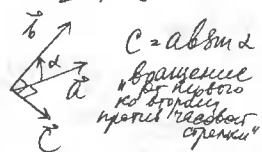 b⃗
α
a⃗
c⃗
c = ab sin α
"вращение
от первого
ко второму
против часовой
стрелки"